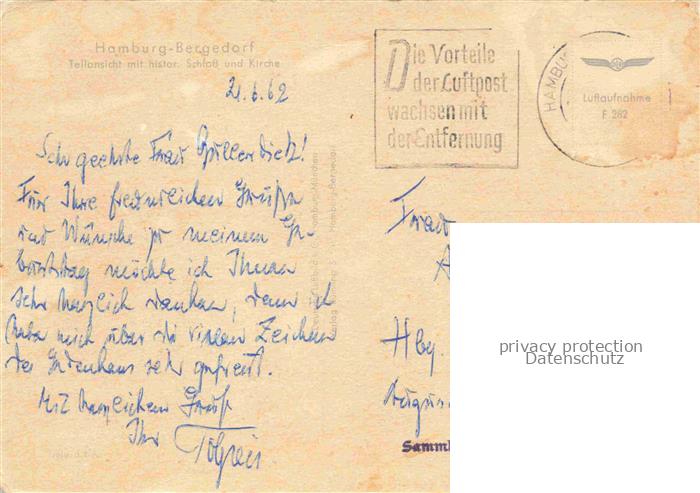 Hamburg-Bergedorf
Teilansicht mit histor. Schloß und Kirche
21.6.62
Sehr geehrte Frau
Für Ihre freundlichen Grüße
und Wünsche zu meinem Ge-
burtstag möchte ich Ihnen
sehr herzlich danken, denn ich
habe mich über die vielen Zeichen
des Gedenkens sehr gefreut.
Mit herzlichem Gruß
Ihr
Die Vorteile
der Luftpost
wachsen mit
der Entfernung
HAMBU
Luftaufnahme
F 282
Frau
A
Hbg.
Augus
Samml
privacy protection
Datenschutz